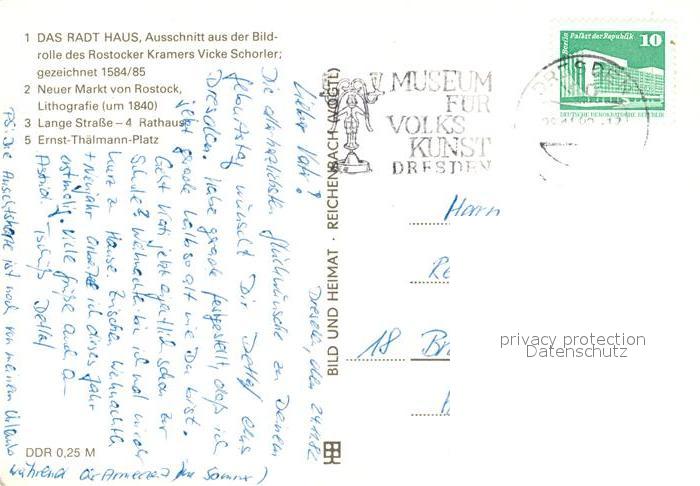 1 DAS RADT HAUS, Ausschnitt aus der Bild-
rolle des Rostocker Kramers Vicke Schorler;
gezeichnet 1584/85
2 Neuer Markt von Rostock,
Lithografie (um 1840)
3 Lange Straße – 4 Rathaus
5 Ernst-Thälmann-Platz
Dresden, den 24.11.82
Die allerherzlichsten Glückwünsche zu Deinem
Geburtstag wünscht Dir Detlef aus
Dresden. Habe gerade festgestellt, daß ich
jetzt gerade halb so alt wie Du bist.
Geht Kati jetzt eigentlich schon zur
Schule? Weihnachten bin ich mal wieder
kurz zu Hause. Zwischen Weihnachten
+ Neujahr arbeite ich dieses Jahr
erstmalig. Viele Grüße auch an
Astrid. Tschüß Detlef
PS: Die Ansichtskarte ist noch von meinem Urlaub
während der Armeezeit (im Sommer)
DDR 0,25 M
BILD UND HEIMAT · REICHENBACH (VOGTL)
MUSEUM
FÜR
VOLKS
KUNST
DRESDEN
Berlin Palast der Republik
10
DEUTSCHE DEMOKRATISCHE REPUBLIK
DRESDEN
Herrn
18 Br
privacy protection
Datenschutz